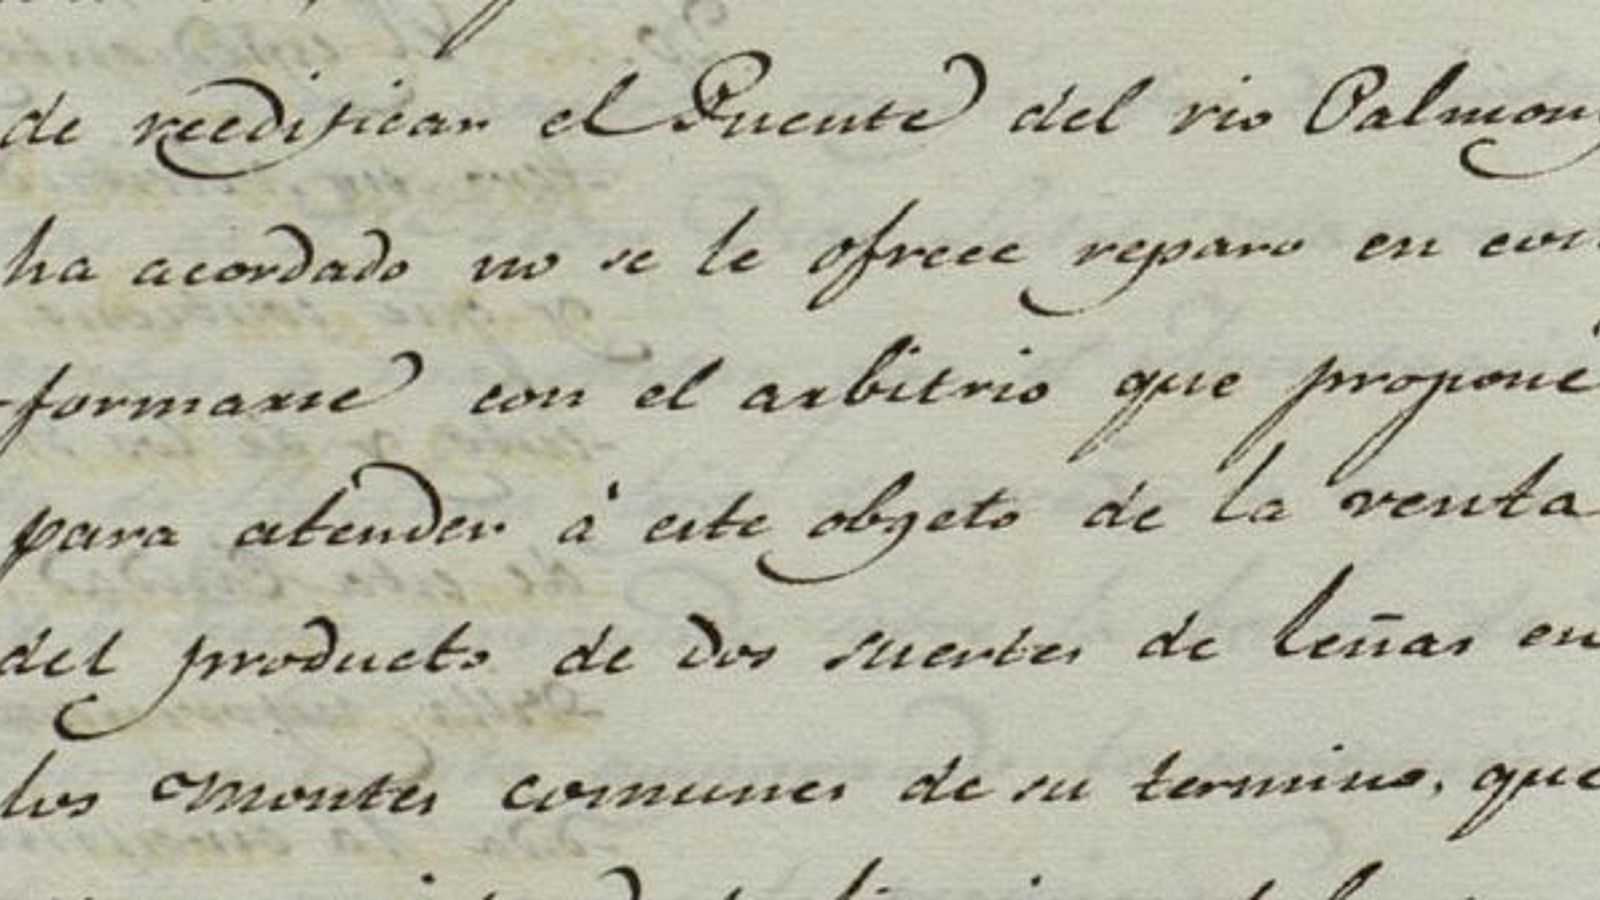 de reedificar el Puente del rio Palmon
ha acordado no se le ofrece reparo en con
-formarse con el arbitrio que propone
para atender á este objeto de la venta
del producto de dos suertes de leñas en
los Montes comunes de su termino, que